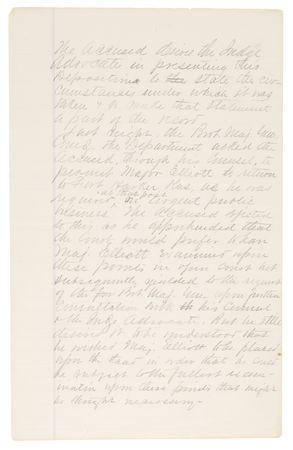 The accused desire the Judge
Advocate in presenting this
deposition to state the cir-
cumstances under which it was
taken & to make that statement
a part of the record.
Last night, the Bvt. Maj. Gen.
Comd'g the Department asked the
accused, through his Counsel, to
permit Major Elliott to return
to Fort Harker Kas, as he was
required at that post on urgent public
business. The accused objected
to this as he apprehended that
the court would prefer to han
Maj. Elliott examined upon
these points in open court but
subsequently yielded to the request
of the Bvt. Maj. Gen. upon further
consultation with his Counsel
& the Judge Advocate. But he still
desired it to be understood that
he wished Maj. Elliott to be placed
upon the stand in order that he could
be subject to the fullest exam-
ination upon these points that might
be thought necessary.